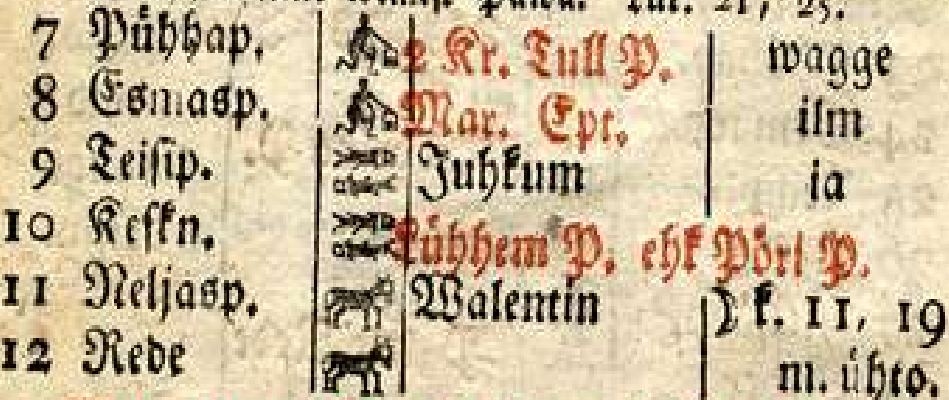 21, 25.
7 Pühhap. 2 Kr. Tull P. wagge
8 Esmasp. Mar. Epr. ilm
9 Teisip. Juhkum ja
10 Keskn. Lühhem P. ehk Pöri P.
11 Neljasp. Walentin ☽ k. 11, 19
12 Rede m. ühto.